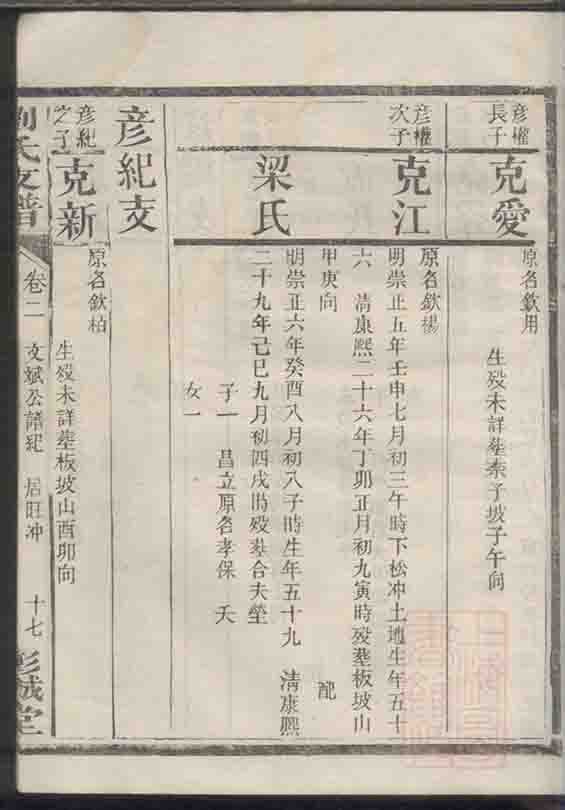 彦權
長子
克愛
原名欽用
生殁未詳塟索子坡子午向
彦權
次子
克江
原名欽楊
明崇正五年壬申七月初三午時下松冲土地生年五十
六　清康熙二十六年丁卯正月初九寅時殁塟板坡山
甲庚向　配
梁氏
明崇正六年癸酉八月初八子時生年五十九　清康熙
二十九年己巳九月初四戌時殁塟合夫塋
子一　昌立原名孝保　夭
女一
彦紀支
彦紀
之子
克新
原名欽柏
生殁未詳塟板坡山酉卯向
劉氏支譜
卷二　文斌公譜紀　居旺冲　十七　彭城堂